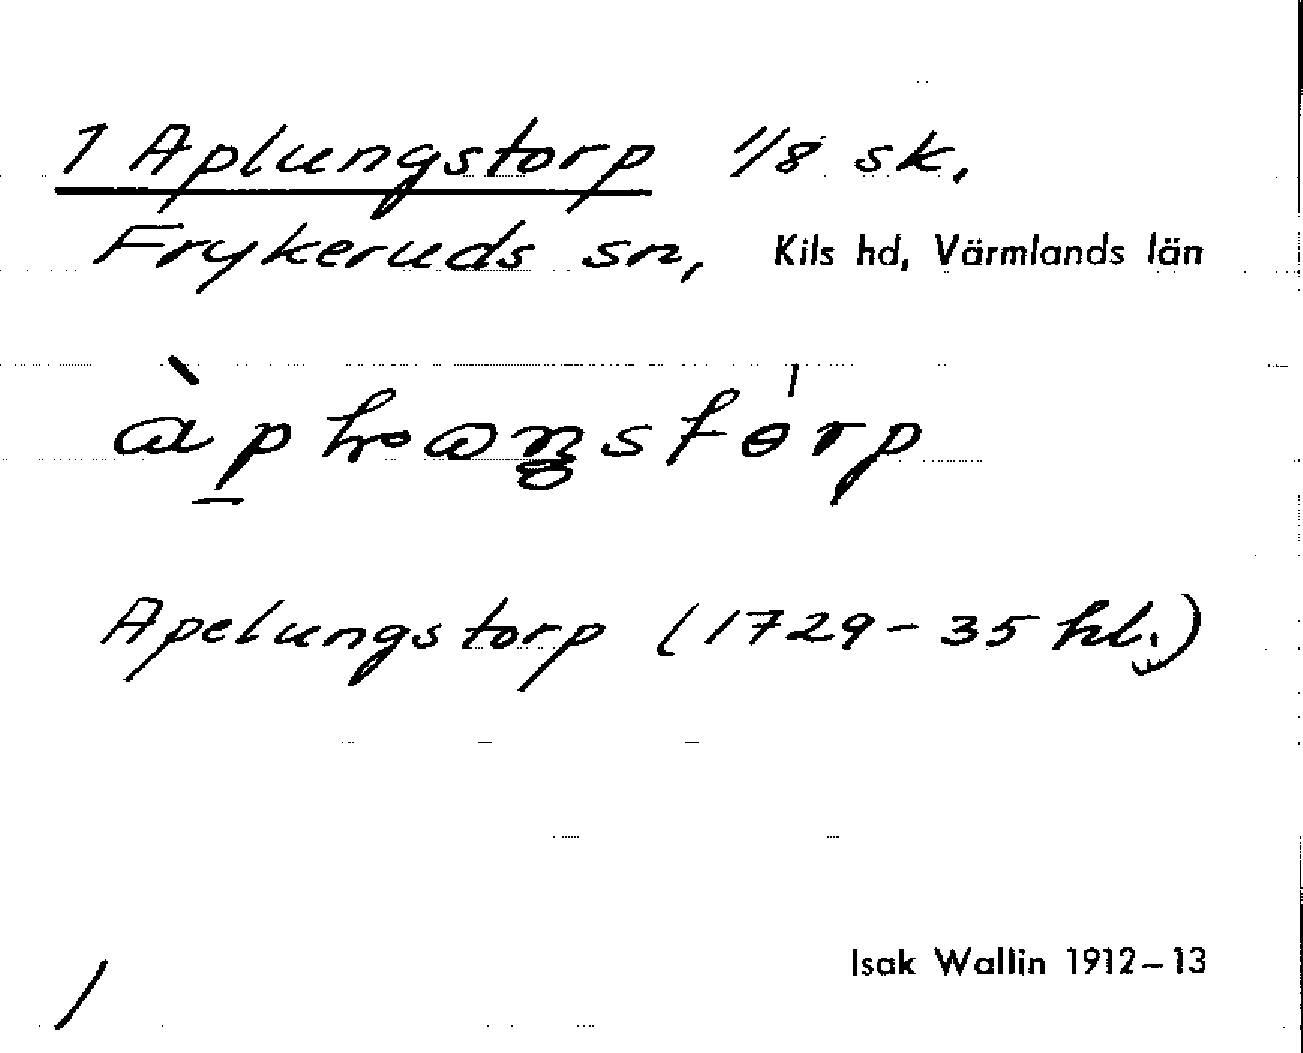 1 Aplungstorp 1/8 sk.
Frykeruds sn, Kils hd, Värmlands län
Apelungstorp (1729-35 hl.)
Isak Wallin 1912–13